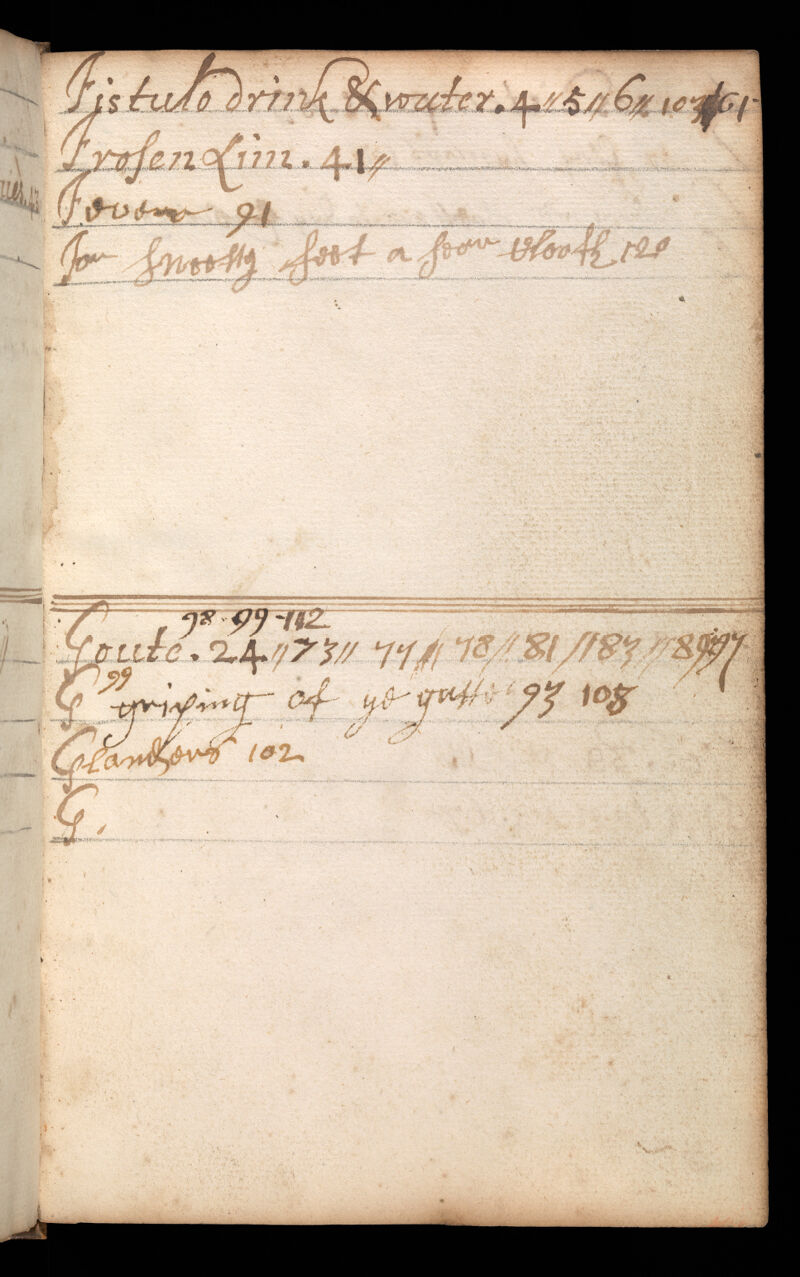 Fistulo drink & water. 4 // 5 // 6 // 103 // 61
Frosen Lim. 41 //
Fever 91
For Sweetty feet a sear Cloath 120
98 99 112
Goute. 24 // 73 // 77 // 78 // 81 // 83 // 89 97
99
G griping of ye gutte 93 108
Glanders 102
G.